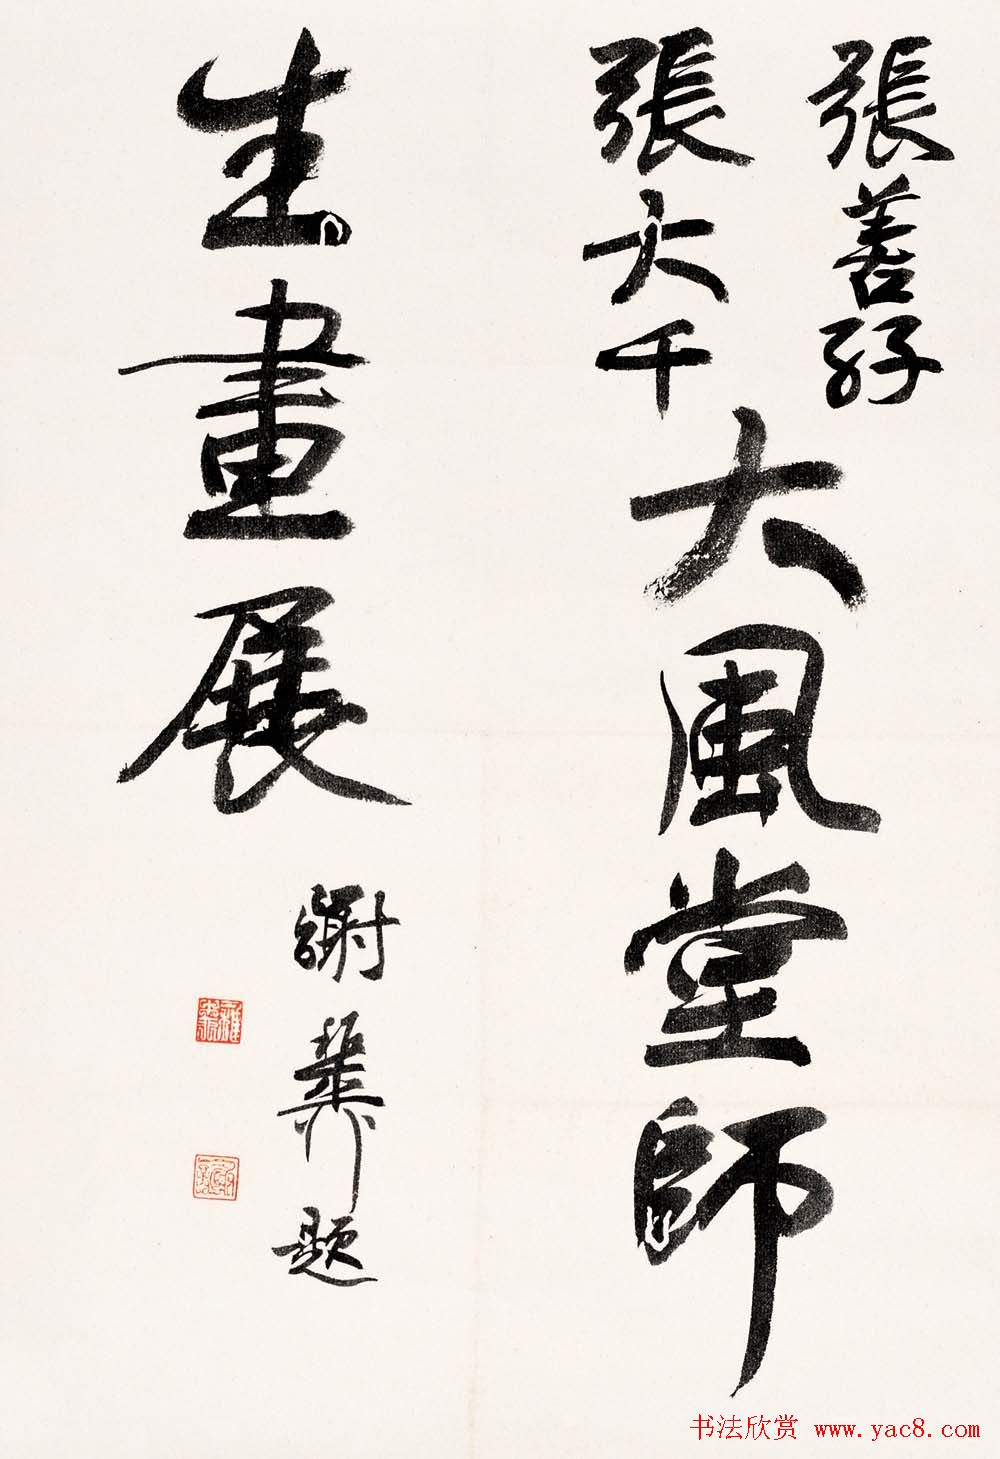 張善孖
張大千
大風堂師
生畫展
謝
題
书法欣赏 www.yac8.com